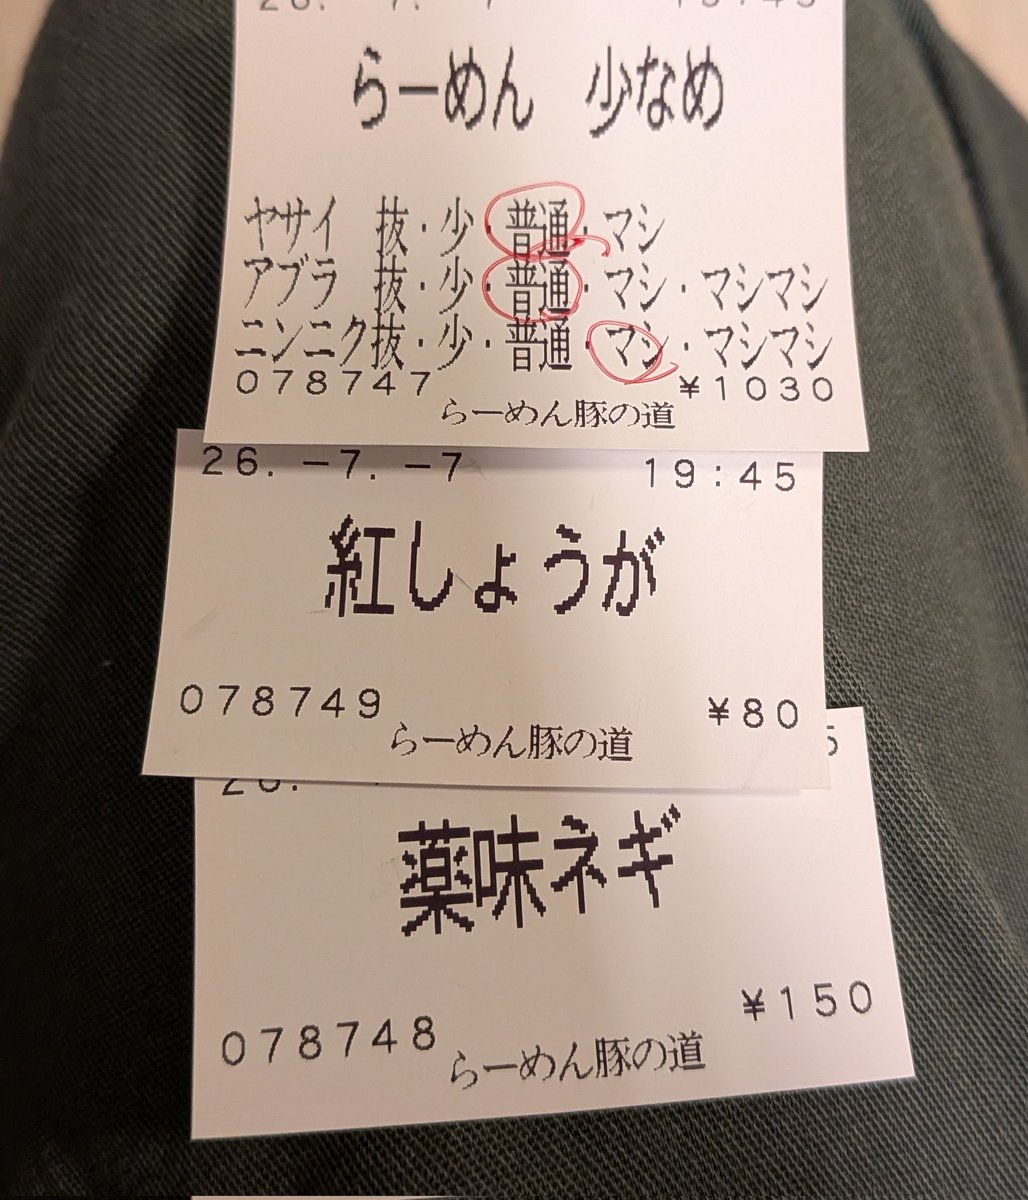 26. -7. -7 19:45
らーめん 少なめ
ヤサイ 抜・少・普通・マシ
アブラ 抜・少・普通・マシ・マシマシ
ニンニク抜・少・普通・マシ・マシマシ
078747 ¥1030
らーめん豚の道
26. -7. -7 19:45
紅しょうが
078749 ¥80
らーめん豚の道
26. 5
薬味ネギ
078748 ¥150
らーめん豚の道